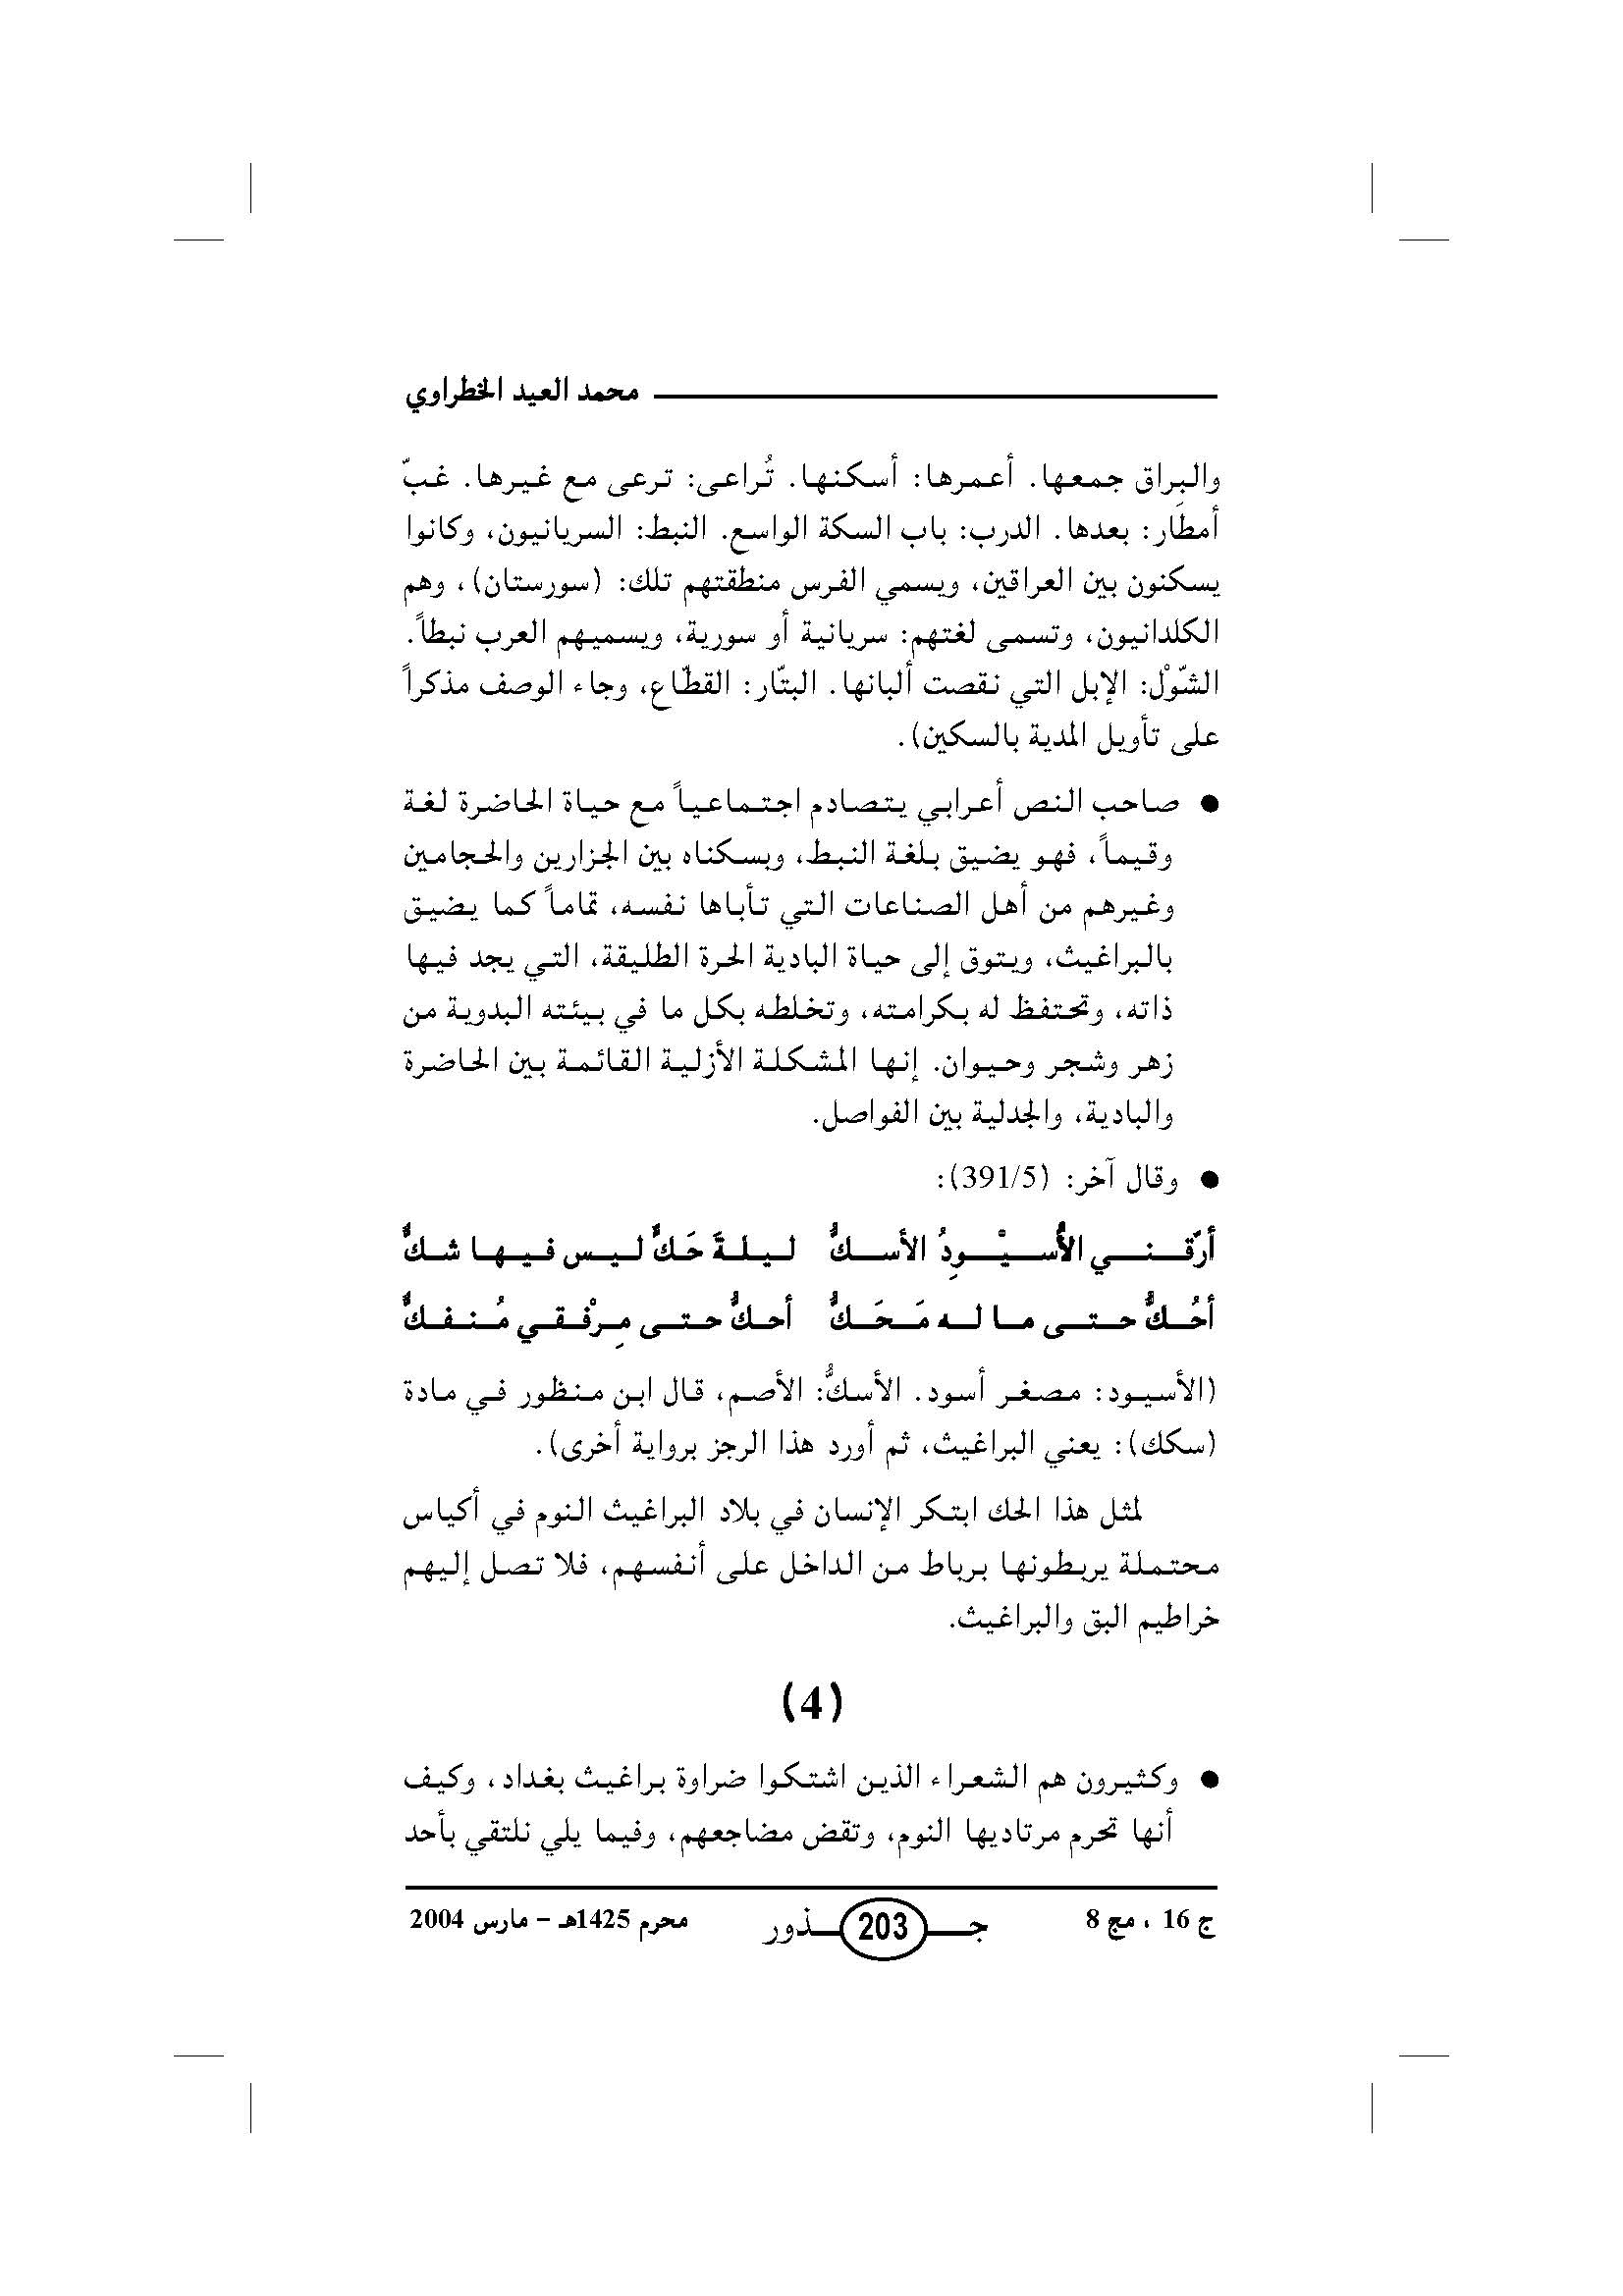 محمد العيد الخطراوي
والبراق جمعها. أعمرها: أسكنها. تُراعى: ترعى مع غيرها. غبّ
أمطَار: بعدها. الدرب: باب السكة الواسع. النبط: السريانيون، وكانوا
يسكنون بين العراقين، ويسمي الفرس منطقتهم تلك: (سورستان)، وهم
الكلدانيون، وتسمى لغتهم: سريانية أو سورية، ويسميهم العرب نبطاً.
الشّوْل: الإبل التي نقصت ألبانها. البتّار: القطّاع، وجاء الوصف مذكراً
على تأويل المدية بالسكين).
● صاحب النص أعرابي يتصادم اجتماعياً مع حياة الحاضرة لغة
وقيماً، فهو يضيق بلغة النبط، وبسكناه بين الجزارين والحجامين
وغيرهم من أهل الصناعات التي تأباها نفسه، تماماً كما يضيق
بالبراغيث، ويتوق إلى حياة البادية الحرة الطليقة، التي يجد فيها
ذاته، وتحتفظ له بكرامته، وتخلطه بكل ما في بيئته البدوية من
زهر وشجر وحيوان. إنها المشكلة الأزلية القائمة بين الحاضرة
والبادية، والجدلية بين الفواصل.
● وقال آخر: (391/5):
أرّقنـي الأُسيْـودِ الأسكُّ ليلـةَ حَكٍّ ليس فيها شكُّ
أحُكُّ حتـى ما لـه مَحَكُّ أحكُّ حتى مِرْفقي مُنفكُّ
(الأسيود: مصغر أسود. الأسكُّ: الأصم، قال ابن منظور في مادة
(سكك): يعني البراغيث، ثم أورد هذا الرجز برواية أخرى).
لمثل هذا الحك ابتكر الإنسان في بلاد البراغيث النوم في أكياس
محتملة يربطونها برباط من الداخل على أنفسهم، فلا تصل إليهم
خراطيم البق والبراغيث.
(4)
● وكثيرون هم الشعراء الذين اشتكوا ضراوة براغيث بغداد، وكيف
أنها تحرم مرتاديها النوم، وتقض مضاجعهم، وفيما يلي نلتقي بأحد
ج 16 ، مج 8 جـ 203 ـذور محرم 1425هـ - مارس 2004